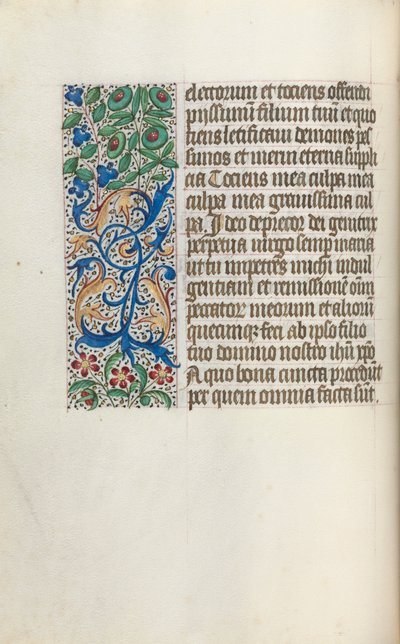 electorum et tociens offendi
piissimum filium tuum et quo
tiens letificaui demones pes
simos et merui eterna suppli
cia Tociens mea culpa mea
culpa mea grauissima cul
pa. Ideo deprecor dei genitrix
perpetua uirgo semp maria
ut tu impetres michi indul
gentiam et remissionē om̄
peccator meorum et aliorū
quecumqꝫ feci Ab ipso filio
tuo domino nostro ihū xpō
A quo bona cuncta procedūt
per quem omnia facta sūt.